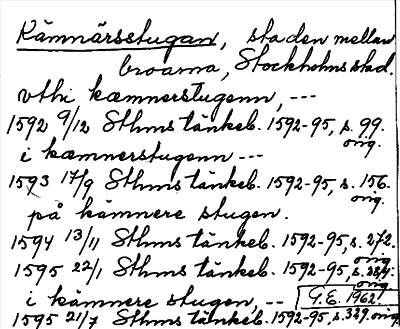 Kämnärsstugan, staden mellan
broarna, Stockholms stad.
vthi kæmnerstugenn, ---
1592 9/12 Sthms tänkeb. 1592-95, s. 99.
orig.
i kæmnerstugenn ---
1593 17/9 Sthms tänkeb. 1592-95, s. 156.
orig.
på kämnere stugen.
1594 13/11 Sthms tänkeb. 1592-95, s. 272.
orig.
1595 22/1 Sthms tänkeb. 1592-95, s. 284.
orig.
i kämnere stugen, -- G.E. 1962.
1595 21/7 Sthms tänkeb. 1592-95, s. 329. orig.